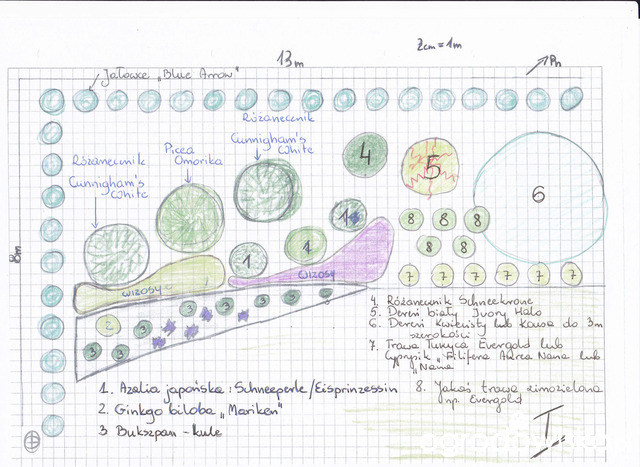 2cm = 1m
13m
Pn
Jałowce „Blue Arrow"
Różanecznik
Cunnigham's
White
Picea
Omorika
Różanecznik
Cunnigham's
White
8m
4
5
6
1
1
1
8 8 8
8 8
7 7 7 7 7 7
wrzosy
wrzosy
2
3 3 3 3 3
3 3
4. Różanecznik Schneekrone
5. Dereń biały Ivory Halo
6. Dereń kwiecisty lub kousa do 3m
szerokości
7. Trawa Turzyca Evergold lub
Cyprysik „Filifera Aurea Nana lub
„Nana"
1. Azalia japońska: Schneeperle/Eisprinzessin
2. Ginkgo biloba „Mariken"
3 Bukszpan - kule
8. Jakaś trawa zimozielona
np. Evergold
I.